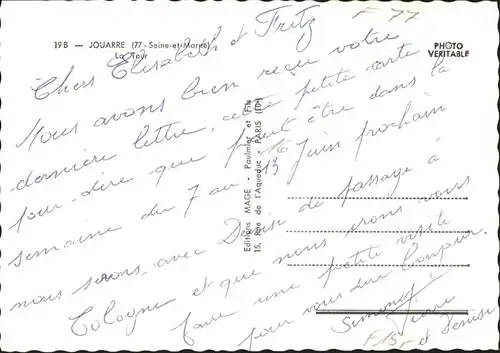 19 B — JOUARRE (77 - Seine-et-Marne)
La Tour
PHOTO
VÉRITABLE
F 77
Chers Elisabeth et Fritz
Nous avons bien reçu votre
dernière lettre, cette petite carte
pour dire que peut être dans la
semaine du 7 au 13 Juin prochain
16
nous serons avec Denise de passage à
Cologne et que nous irons vous
faire une petite visite
pour vous dire bonjour.
Simone
Pierre
et Denise
F 15
Editions MAGE - Paulmier et Fils
15, Rue de l'Aqueduc PARIS (10e)